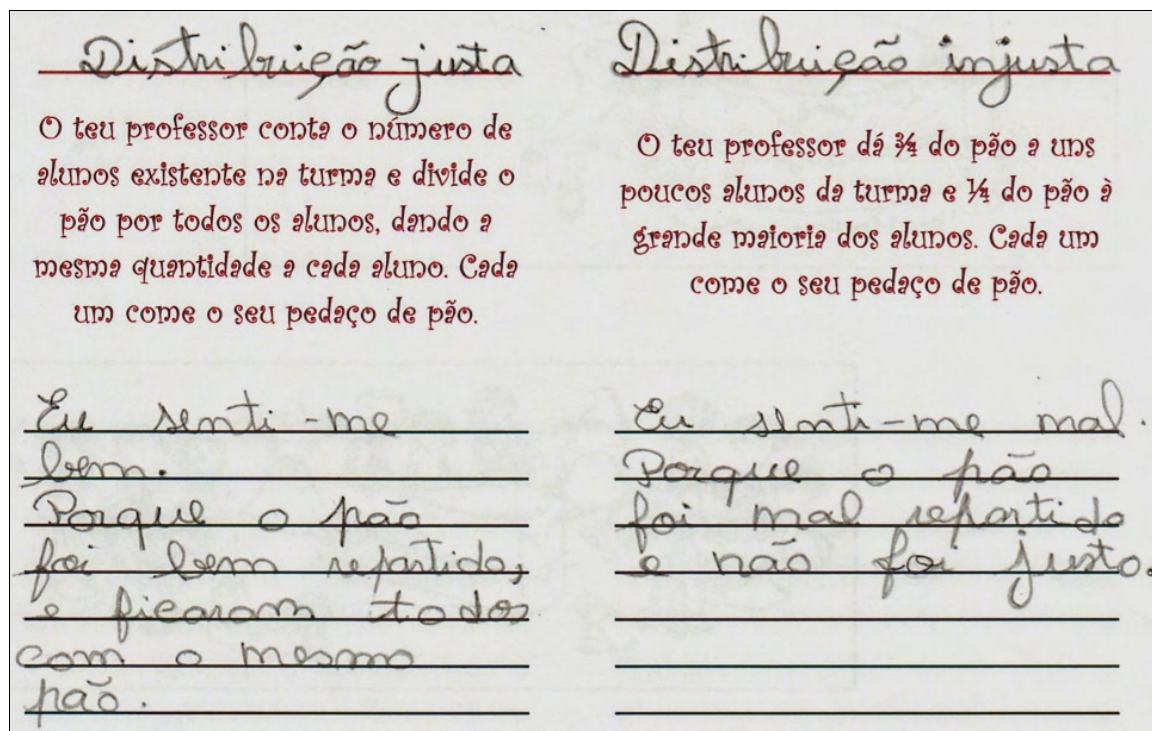 Distribuição justa
O teu professor conta o número de
alunos existente na turma e divide o
pão por todos os alunos, dando a
mesma quantidade a cada aluno. Cada
um come o seu pedaço de pão.
Eu senti-me
bem.
Porque o pão
foi bem repartido,
e ficaram todos
com o mesmo
pão.
Distribuição injusta
O teu professor dá ¾ do pão a uns
poucos alunos da turma e ¼ do pão à
grande maioria dos alunos. Cada um
come o seu pedaço de pão.
Eu senti-me mal.
Porque o pão
foi mal repartido
e não foi justo.